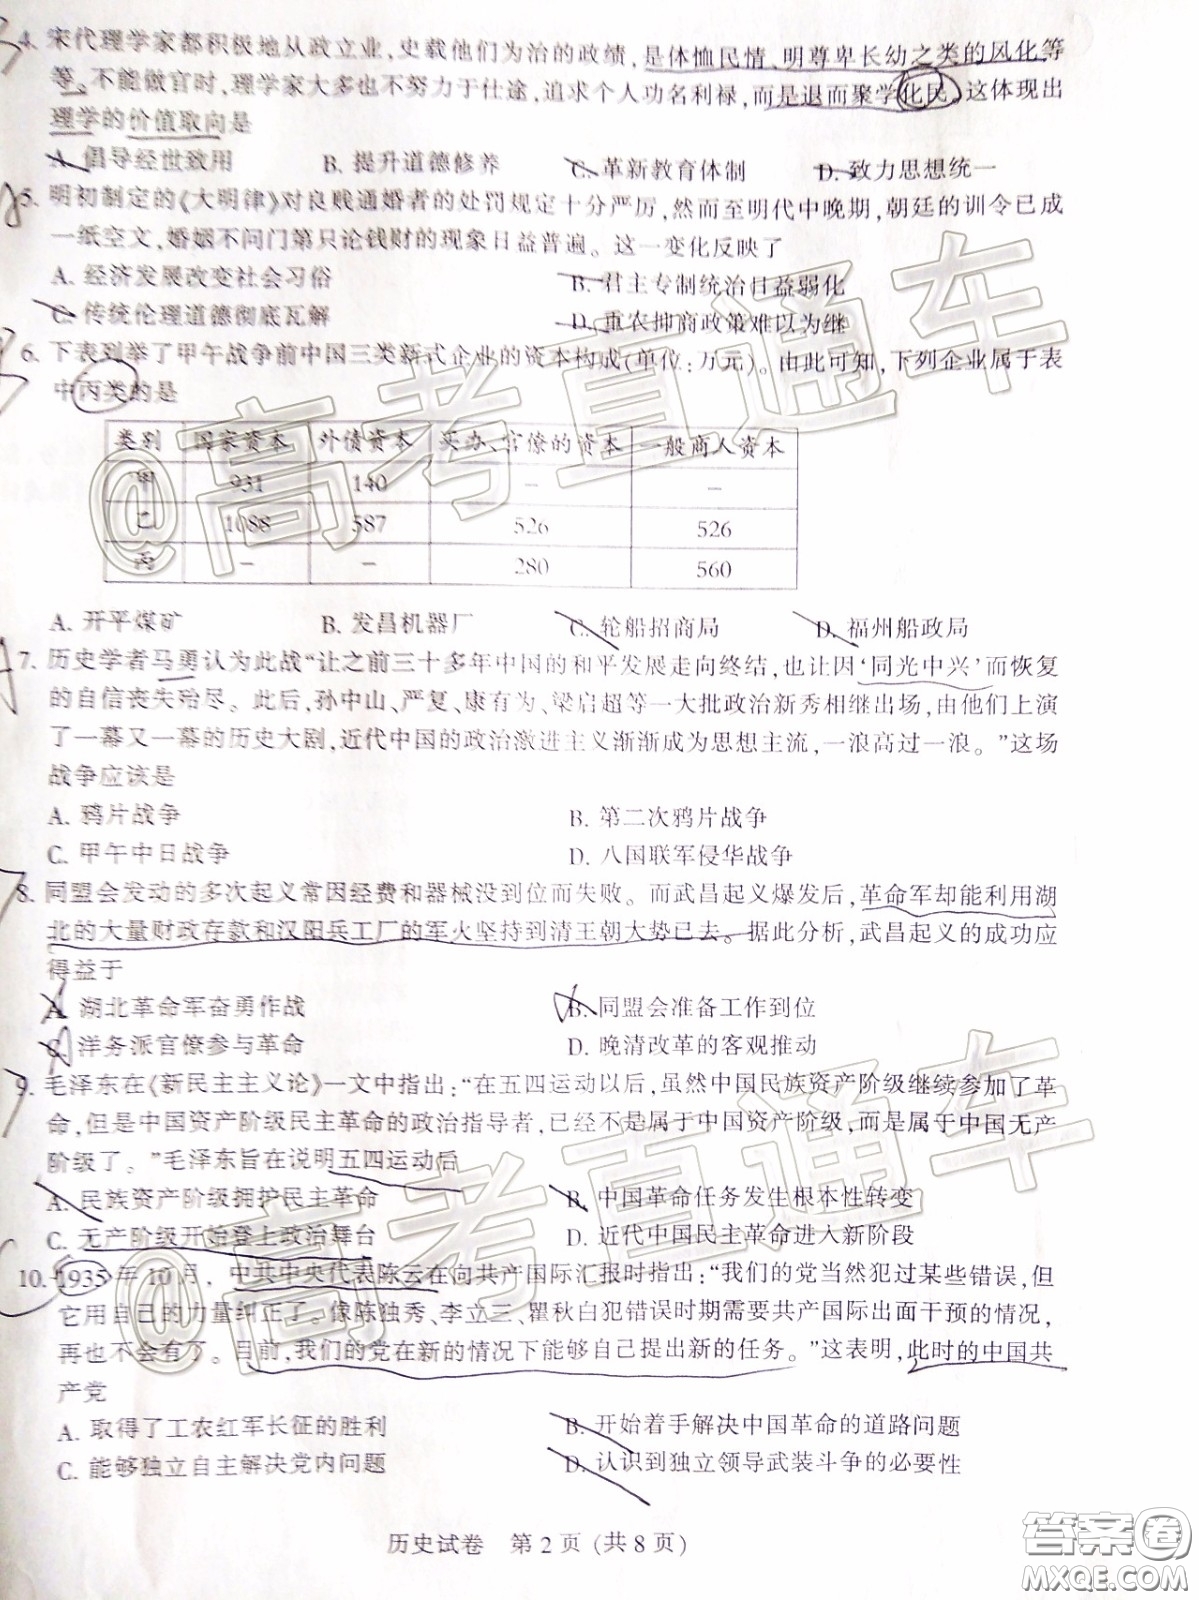 4. 宋代理学家都积极地从政立业,史载他们为治的政绩,是体恤民情、明尊卑长幼之类的风化等
等。不能做官时,理学家大多也不努力于仕途,追求个人功名利禄,而是退而聚学化民。这体现出
理学的价值取向是
A. 倡导经世致用 B. 提升道德修养 C. 革新教育体制 D. 致力思想统一
5. 明初制定的《大明律》对良贱通婚者的处罚规定十分严厉,然而至明代中晚期,朝廷的训令已成
一纸空文,婚姻不问门第只论钱财的现象日益普遍。这一变化反映了
A. 经济发展改变社会习俗 B. 君主专制统治日益弱化
C. 传统伦理道德彻底瓦解 D. 重农抑商政策难以为继
6. 下表列举了甲午战争前中国三类新式企业的资本构成(单位:万元)。由此可知,下列企业属于表
中丙类的是
类别 国家资本 外债资本 买办、官僚的资本 一般商人资本
甲 931 140 – –
乙 1088 587 526 526
丙 – – 280 560
A. 开平煤矿 B. 发昌机器厂 C. 轮船招商局 D. 福州船政局
7. 历史学者马勇认为此战“让之前三十多年中国的和平发展走向终结,也让因‘同光中兴’而恢复
的自信丧失殆尽。此后,孙中山、严复、康有为、梁启超等一大批政治新秀相继出场,由他们上演
了一幕又一幕的历史大剧,近代中国的政治激进主义渐渐成为思想主流,一浪高过一浪。”这场
战争应该是
A. 鸦片战争 B. 第二次鸦片战争
C. 甲午中日战争 D. 八国联军侵华战争
8. 同盟会发动的多次起义常因经费和器械没到位而失败。而武昌起义爆发后,革命军却能利用湖
北的大量财政存款和汉阳兵工厂的军火坚持到清王朝大势已去。据此分析,武昌起义的成功应
得益于
A. 湖北革命军奋勇作战 B. 同盟会准备工作到位
C. 洋务派官僚参与革命 D. 晚清改革的客观推动
9. 毛泽东在《新民主主义论》一文中指出:“在五四运动以后,虽然中国民族资产阶级继续参加了革
命,但是中国资产阶级民主革命的政治指导者,已经不是属于中国资产阶级,而是属于中国无产
阶级了。”毛泽东旨在说明五四运动后
A. 民族资产阶级拥护民主革命 B. 中国革命任务发生根本性转变
C. 无产阶级开始登上政治舞台 D. 近代中国民主革命进入新阶段
10. 1935年10月,中共中央代表陈云在向共产国际汇报时指出:“我们的党当然犯过某些错误,但
它用自己的力量纠正了。像陈独秀、李立三、瞿秋白犯错误时期需要共产国际出面干预的情况,
再也不会有了。目前,我们的党在新的情况下能够自己提出新的任务。”这表明,此时的中国共
产党
A. 取得了工农红军长征的胜利 B. 开始着手解决中国革命的道路问题
C. 能够独立自主解决党内问题 D. 认识到独立领导武装斗争的必要性
历史试卷 第2页(共8页)
@高考直通车
@高考直通车
答案卷
MXQE.COM